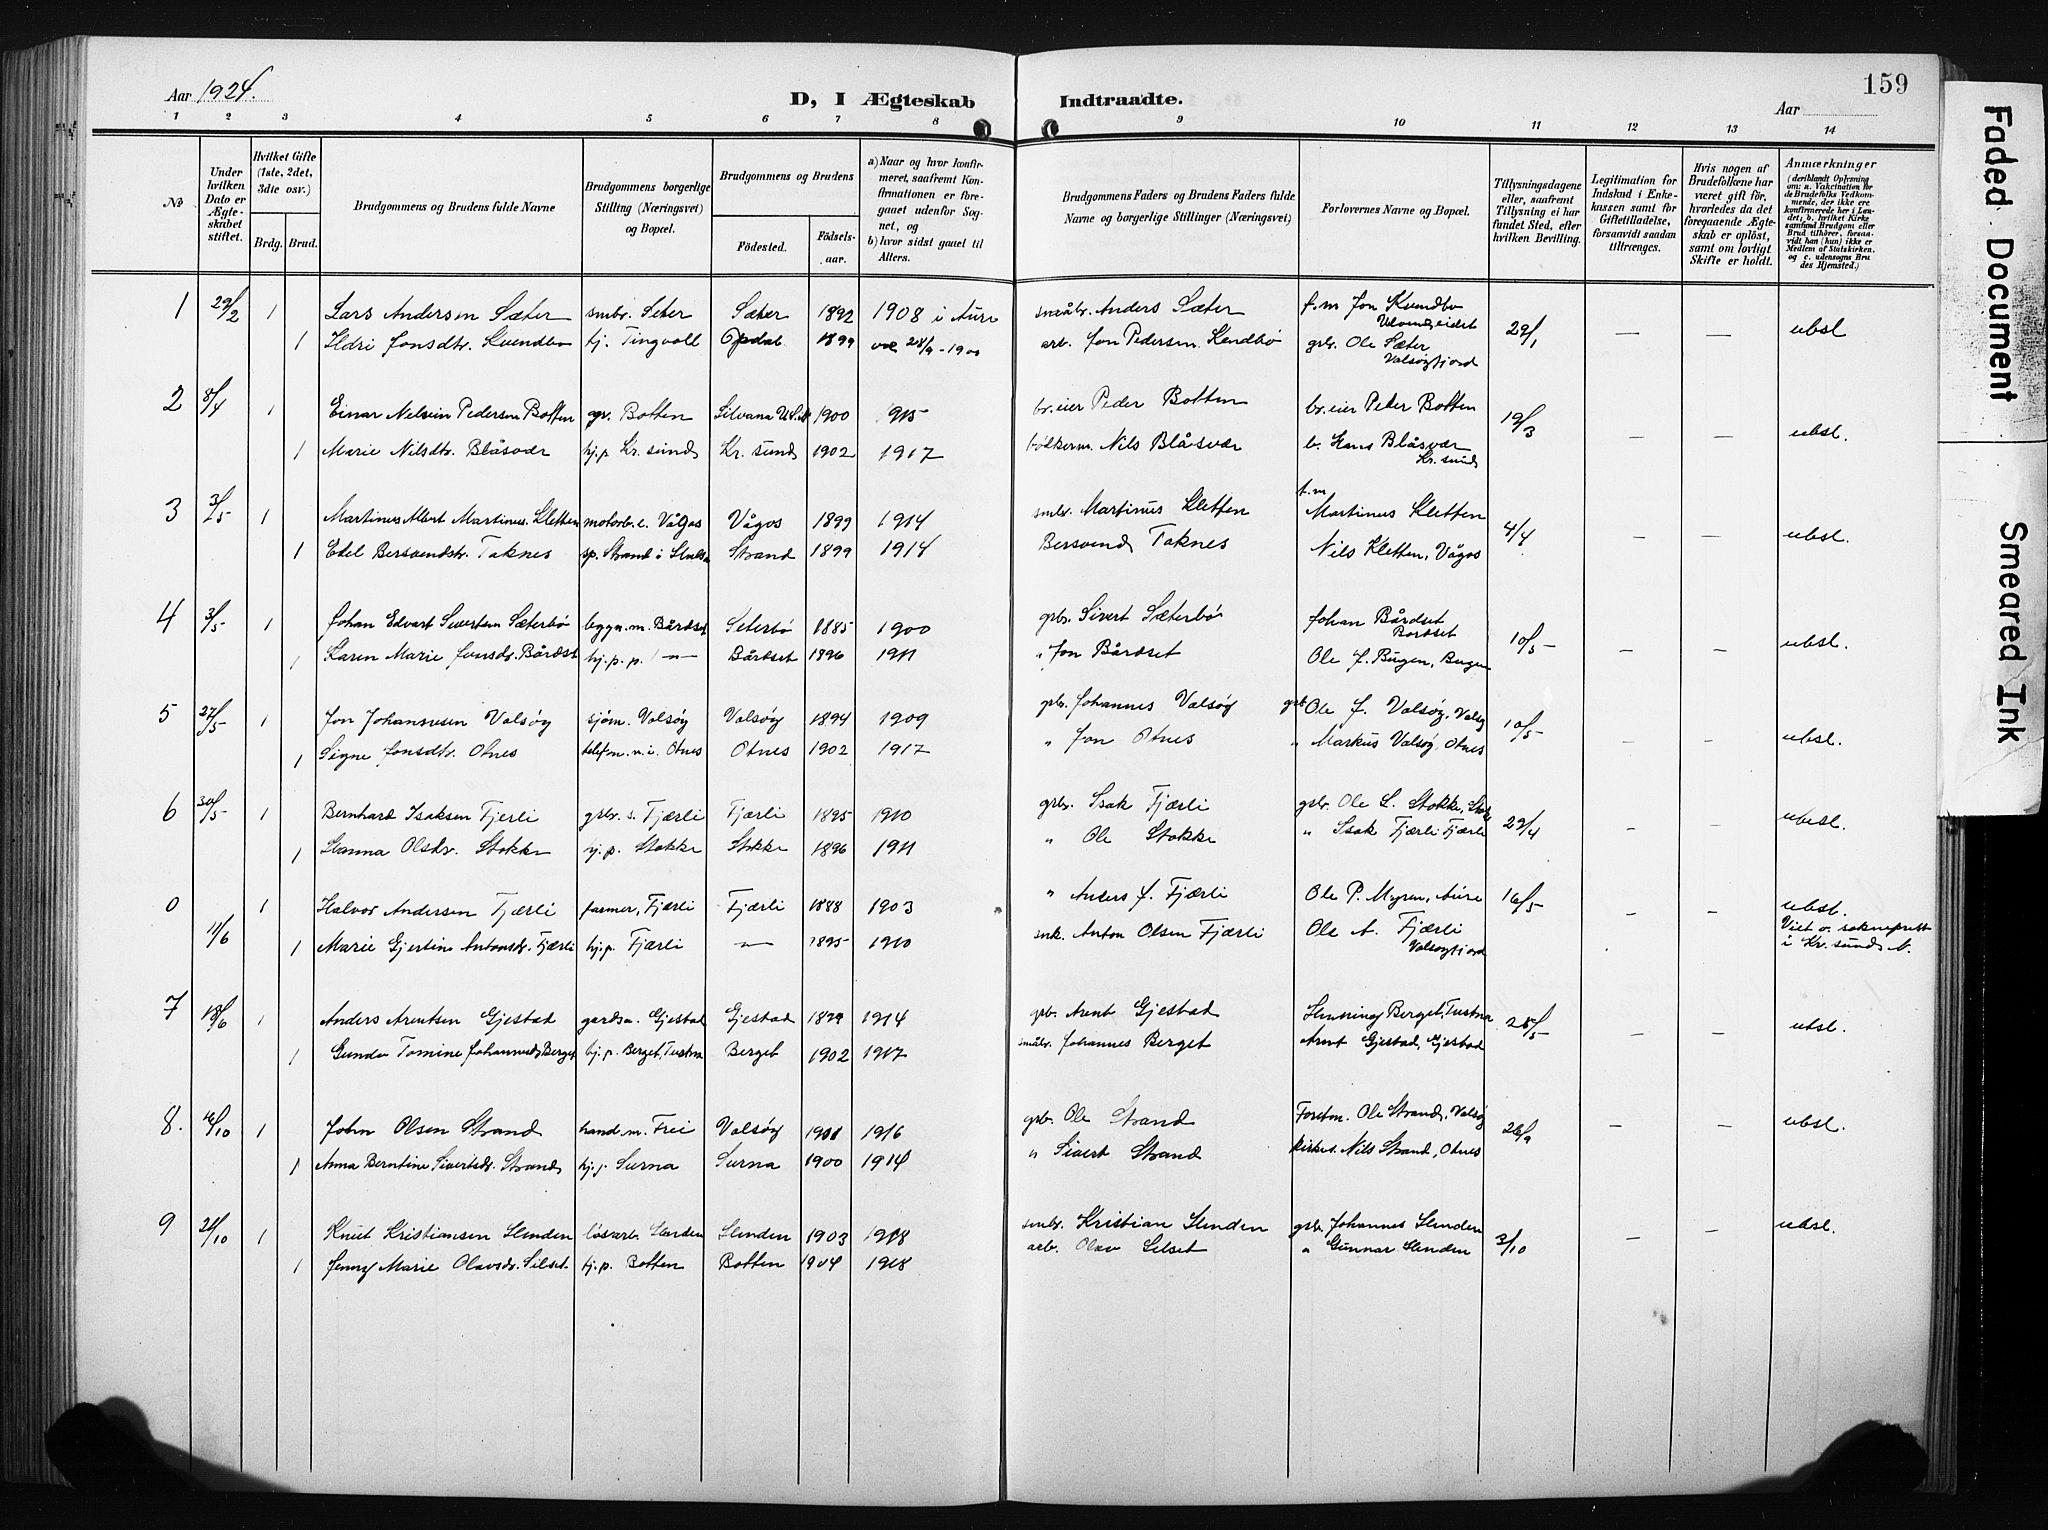 159
Aar 1924.
D, I Ægteskab Indtraadte.
Aar
1 2 3 4 5 6 7 8 9 10 11 12 13 14
No
Under hvilken Dato er Ægteskabet stiftet.
Hvilket Gifte (1ste, 2det, 3die osv.)
Brdg. Brud.
Brudgommens og Brudens fulde Navne
Brudgommens borgerlige Stilling (Næringsvei) og Bopæl.
Brudgommens og Brudens
Födested. Födsels-aar.
a) Naar og hvor konfirmeret, saafremt Konfirmationen er foregaaet udenfor Sognet, og
b) hvor sidst gaaet til Alters.
Brudgommens Faders og Brudens Faders fulde Navne og borgerlige Stillinger (Næringsvei)
Forlovernes Navne og Bopæl.
Tillysningsdagene eller, saafremt Tillysning ei har fundet Sted, efter hvilken Bevilling.
Legitimation for Indskud i Enkekassen samt for Giftetilladelse, forsaavidt saadan tiltrænges.
Hvis nogen af Brudefolkene har været gift för, hvorledes da det foregaaende Ægteskab er oplöst, samt om lovligt Skifte er holdt.
Anmærkninger (deriblandt Oplysning om: a. Vakcination for de Brudefolks Vedkommende, der ikke ere konfirmerede her i Landet; b. hvilket Kirkesamfund Brudgom eller Brud tilhörer, forsaavidt han (hun) ikke er Medlem af Statskirken. og c. udensogns Brudes Hjemsted.)
1 29/2 1 Lars Andersen Sæter smbr. Seter Sæter 1892 1908 i Aure småbr. Anders Sæter f.m Jon Kvendbo 29/1 — — ubsl
1 Ildri Jonsdtr. Kvendbo hj. Tingvoll Opdal 1899 28/9-1900 arb. Jon Pedersen Kendbø grbr. Ole Sæter Valsøyfjord
2 8/4 1 Einar Nelvin Pedersen Botten gr. Botten Silvana U.S.A 1900 1915 br.eier Peder Botten br.eier Peter Botten 19/3 — — ubsl.
1 Marie Nilsdtr. Blåsvær hj.p. Kr.sund Kr. sund 1902 1917 bøkkerm. Nils Blåsvær b. Hans Blåsvær Kr. sund
3 3/5 1 Martinus Albert Martinus. Kletten motorb.e. Vågos Vågos 1899 1914 smbr. Martinus Kletten f.m Martinus Kletten 4/4 — — ubsl.
1 Edel Bersvendsdtr. Taknes sp. Strand i Strand 1899 1914 Bersvend Taknes Nils Kletten, Vågos
4 3/5 1 Johan Edvart Sivertsen Sæterbø byggn.m. Bårdset Seterbø 1885 1900 grbr. Sivert Sæterbø Johan Bårdset Bordset 10/5 — — ubsl.
1 Karen Marie Jonsdr. Bårdset hj.p.p. — " — Bårdset 1896 1911 " Jon Bårdset Ole J. Bugen, Bugen
5 27/5 1 Jon Johannesen Valsøy sjøm. Valsøy Valsøy 1894 1909 gbr. Johannes Valsøy grb Ole J. Valsøy, Valsøy 10/5 — — ubsl.
1 Signe Jonsdtr. Otnes telefon.n.i. Otnes Otnes 1902 1917 " Jon Otnes " Markus Valsøy, Otnes
6 30/5 1 Bernhard Isaksen Fjerli grbr. s. Fjærli Fjærli 1895 1910 grbr. Isak Fjærli grbr. Ole L. Stokke, 29/4 — — ubsl.
1 Hanna Olsdr. Stokke hj.p. Stokke Stokke 1896 1911 " Ole Stokke " Isak Fjærli Fjærli
0 11/6 1 Halvor Andersen Fjærli farmer, Fjærli Fjærli 1888 1903 " Anders J. Fjærli Ole P. Myren, Aure 16/5 — — ubsl.
1 Marie Gjertine Antonsdr. Fjærli hj.p. Fjærli — " — 1895 1910 snk. Anton Olsen Fjærli Ole A. Fjærli Valsøyfjord Viet o. sokneprest i Kr. sund N.
7 18/6 1 Anders Arentsen Gjestad gardsa. Gjestad Gjestad 1899 1914 grb. Arent Gjestad Henning Berget, Tustna 25/5 — — ubsl.
1 Gunda Tomine Johannesd. Berget hj.p. Berget, Tustna Berget 1902 1917 småbr. Johannes Berget Arent Gjestad, Gjestad
8. /10 1 John Olsen Strand hand.m. Frei Valsøy 1901 1916 grb. Ole Strand Forstm. Ole Strand, Valsøy 26/9 — — ubsl.
1 Anna Berntine Sivertsdr. Strand hj.p Surna Surna 1900 1914 " Sivert Strand kirkes. Nils Strand, Otnes
9 /10 1 Knut Kristiansen Henden løsarb. Henden Henden 1903 1918 smbr. Kristian Henden gsbr. Johannes Henden 3/10 — — ubsl.
1 Jenny Marie Olavsdr. Selset hj.p. Botten Botten 1904 1918 arb. Olav Selset " Gunnar Henden
Faded Document
Smeared Ink